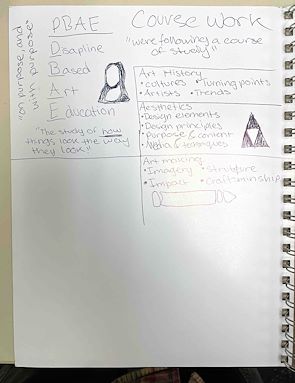 "on purpose, and
with purpose"
PBAE
Disapline
Based
Art
Education
"The study of how
things look the way
they look"
Course work
"were following a course
of study"
Art History
• cultures • Turning points
• Artists • Trends
Aesthetics
• Design elements
• Design principles
• Purpose & content
• Media & techniques
Art making
• Imagery • Structure
• Impact • Craftsminship